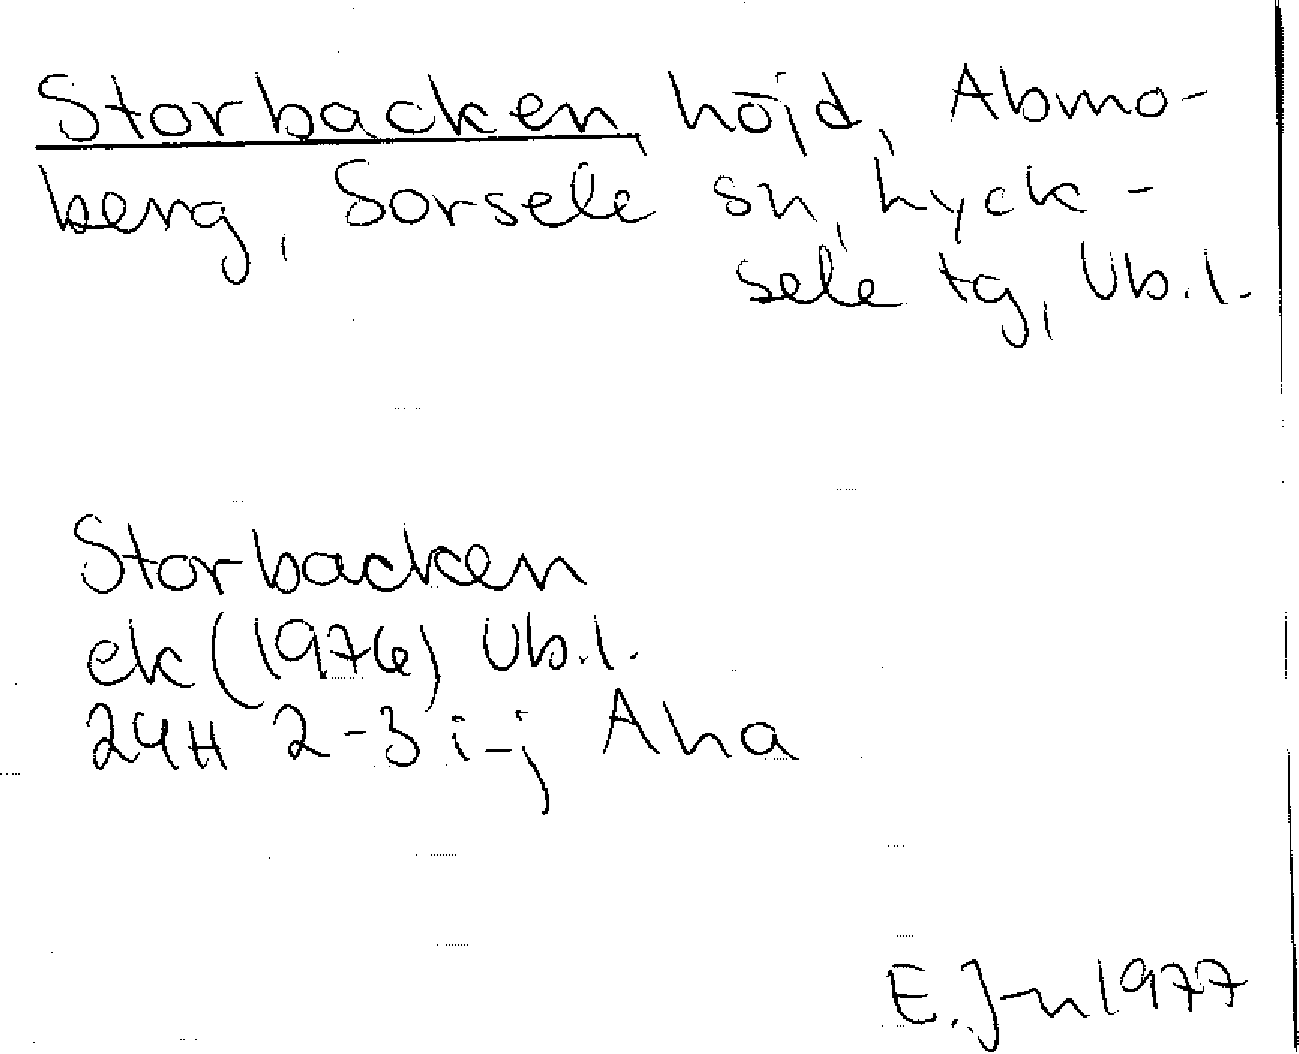 Storbacken, höjd, Abmo-
berg, Sorsele sn, Lyck-
sele tg, Vb.l.
Storbacken
ek (1976) Vb.l.
24H 2-3 i-j Aha
E. J-n 1977